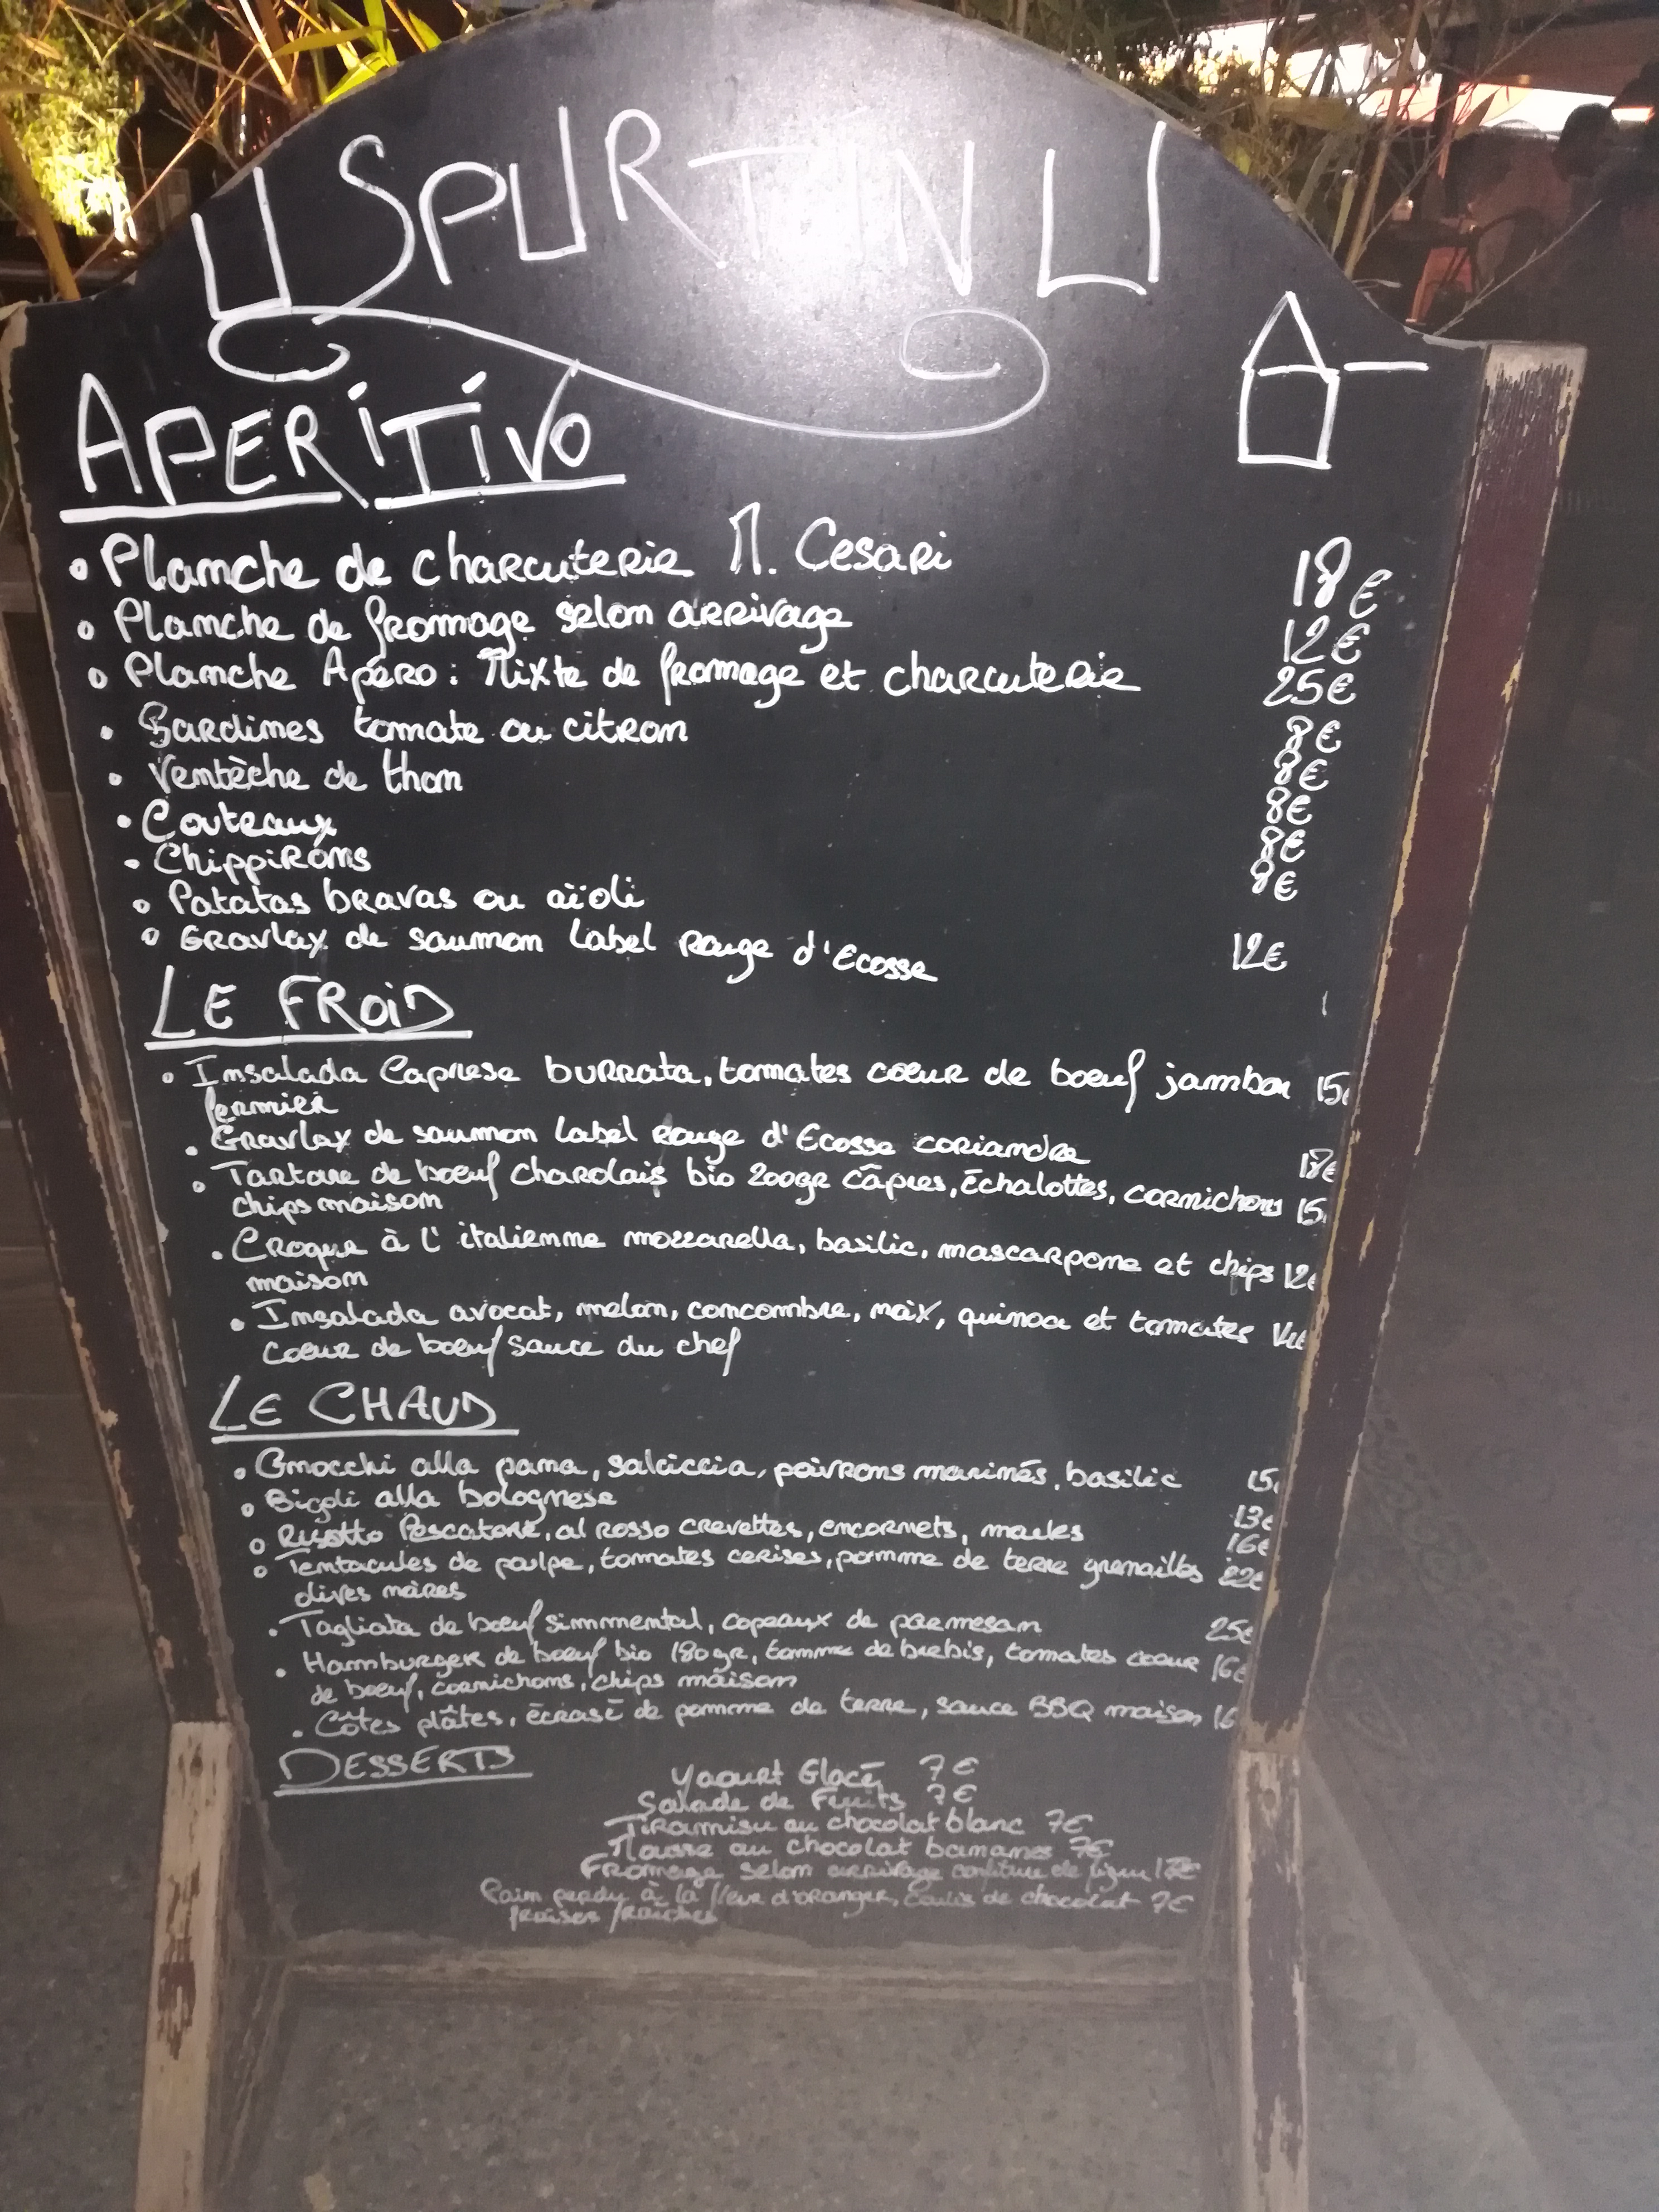 U SPURTINLI
APERITIVO
• Planche de charcuterie M. Cesari 18€
• Planche de fromage selon arrivage 12€
• Planche Apéro : Mixte de fromage et charcuterie 25€
• Sardines tomate ou citron 8€
• Ventèche de thon 8€
• Couteaux 8€
• Chippirons 8€
• Patatas bravas ou aïoli 8€
• Gravlax de saumon Label Rouge d'Ecosse 12€
LE FROID
• Insalada Caprese burrata, tomates cœur de bœuf jambon 15€
fermier
• Gravlax de saumon Label Rouge d'Ecosse coriandre 18€
• Tartare de bœuf charolais bio 200gr Câpres, Échalottes, cornichons 15
chips maison
• Croque à l'italienne mozzarella, basilic, mascarpone et chips 12€
maison
• Insalada avocat, melon, concombre, maïx, quinoa et tomates 14€
cœur de bœuf sauce du chef
LE CHAUD
• Gnocchi alla pana, salciccia, poivrons marinés, basilic 15
• Bigoli alla bolognese 13€
• Risotto Pescatore, al rosso crevettes, encornets, moules 16€
• Tentacules de poulpe, tomates cerises, pomme de terre grenailles 22€
olives noires
• Tagliata de bœuf simmental, copeaux de parmesan 25€
• Hamburger de bœuf bio 180gr, tomme de brebis, tomates cœur 16€
de bœuf, cornichons, chips maison
• Côtes plâtes, écrasé de pomme de terre, sauce BBQ maison 16
DESSERTS
Yaourt Glacé 7€
Salade de Fruits 7€
Tiramisu au chocolat blanc 7€
Mousse au chocolat bananes 7€
Fromage selon arrivage confiture de figue 12€
Pain perdu à la fleur d'oranger, Coulis de chocolat 7€
fraises fraîches